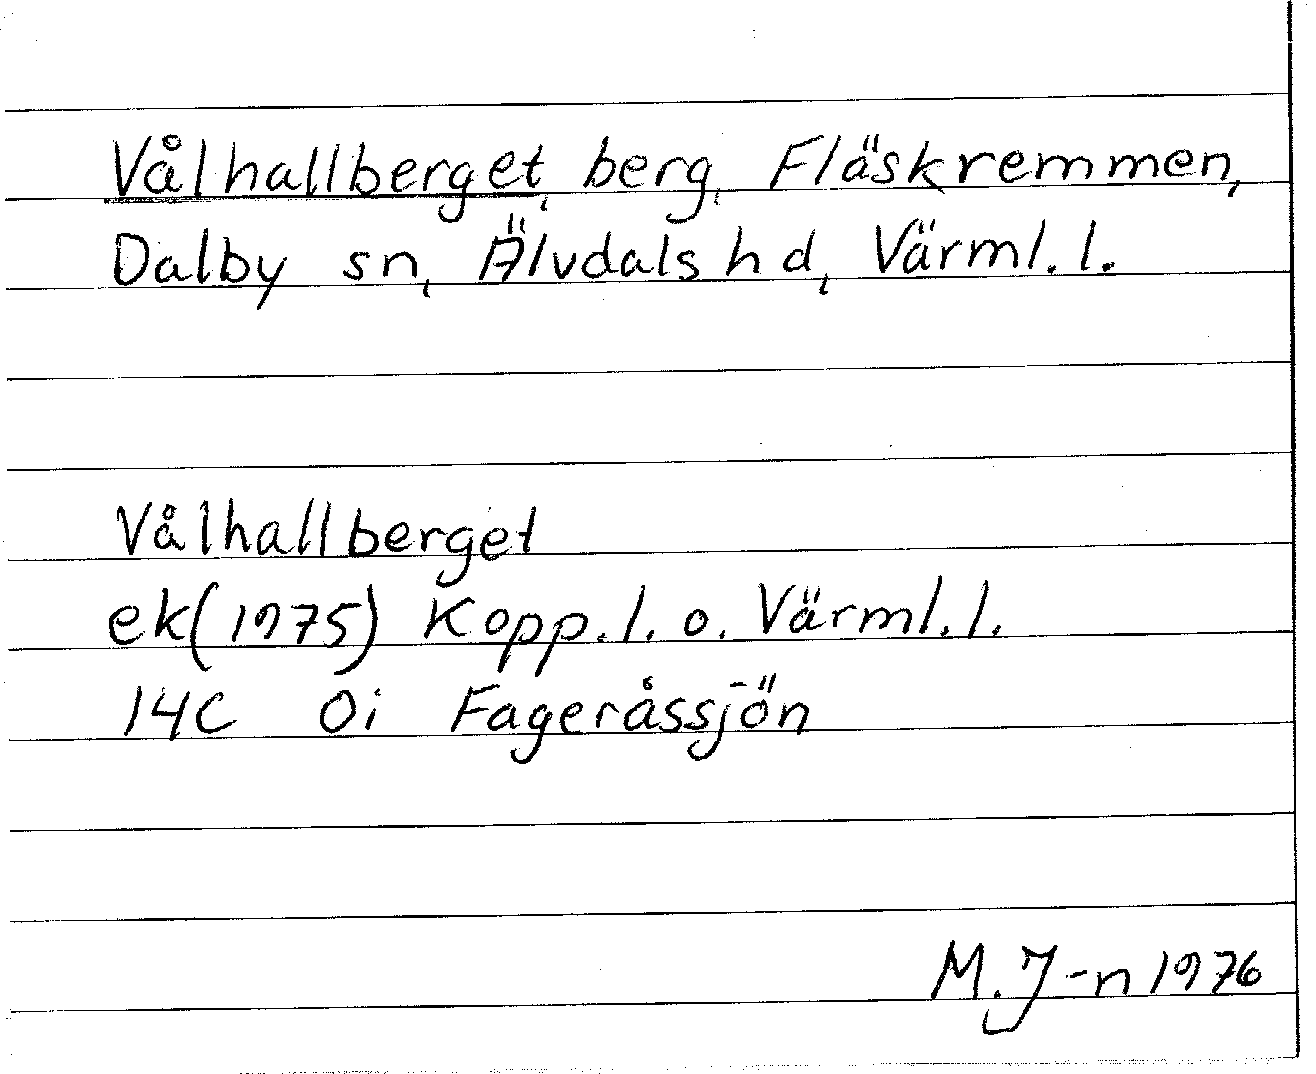 Vålhallberget, berg, Fläskremmen,
Dalby sn, Älvdals hd, Värml. l.
Vålhallberget
ek (1975) Kopp. l. o. Värml. l.
14C 0i Fageråssjön
M. J-n 1976